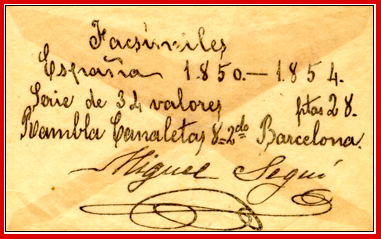 Facsimiles
España 1850.—1854.
Serie de 34 valores ptas 28.
Rambla Canaletas 8=2do Barcelona.
Miguel Seguí